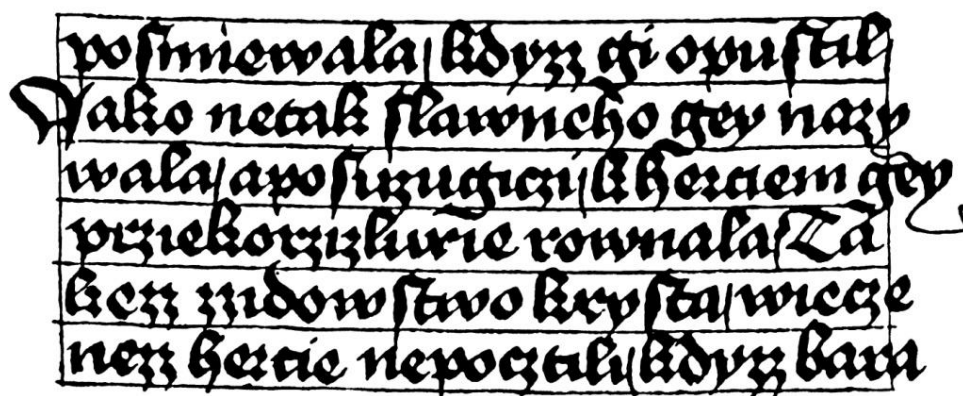 poſmiewala / kdyzz gi opuſtil /
Jako netak ſlawneho gey nazy
wala / apoſuzugiczi / k herciem gey
prziekorzizluwie rownala / Ta
kezz zzidowſtwo kryſta / wiecze
nezz hercie nepocztili / kdyzz bara